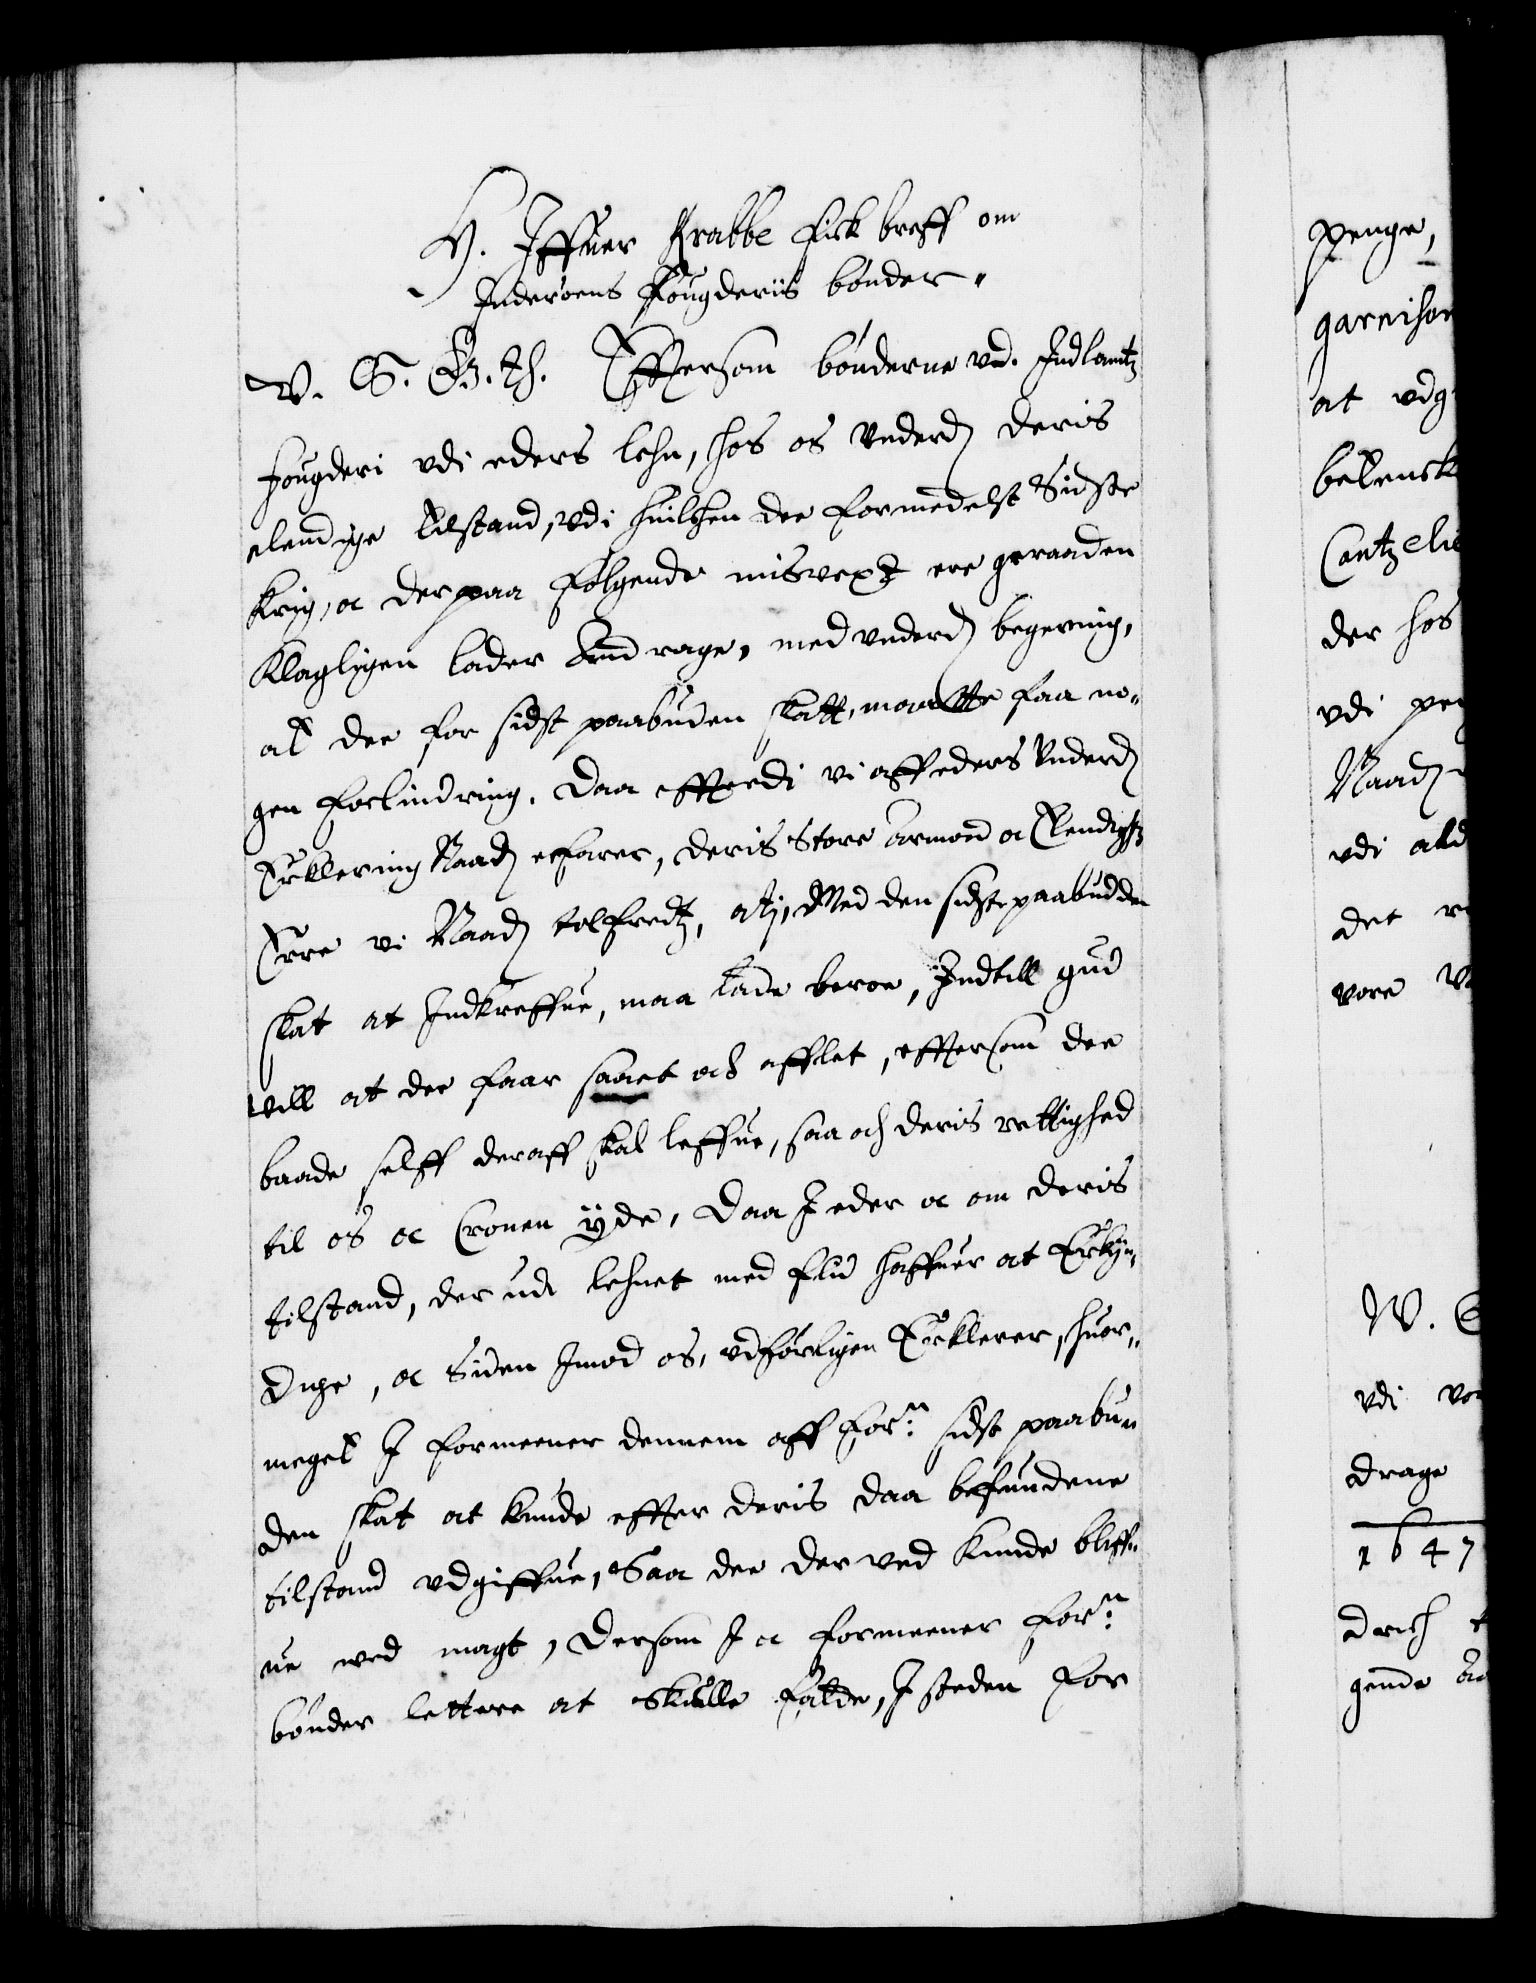 H. Iffuer Krabbe fick breff om
Inderøens Fougderiis bønder.
V. G. G. th. Effersom bønderne vd. Indlantz
fougderi vdi eders lehn, hos os Underd deris
elendige tilstand, vdi huilchen dee formedelst Sidste
krig, oc derpaa følgende misvext ere geraaden
Klagligen lader Andrage, med underd begering,
at dee for sidst paabuden skatt, maatte faa no-
gen forlindring. Daa efftterdi vi aff eders Underd
Erklering Naad erfarer, deris Store Armod oc Elendighd
Erre vi Naad tilfredtz, at j, Med den sidste paabudden
skat at Indkreffue, maa lade beroe, Indtill gud
vill at dee faar saaet och afflet, effersom dee
baade selff deraff skal leffue, saa och deris rettighed
til os oc Cronen yde, Daa I eder oc om deris
tilstand, der udi lehnet med flid haffuer at Erkyn-
dige, oc Siden Imod os, udførligen Erklerer, huor-
meget I formeener dennem aff For:ne sidst paabun
den skat at kunde effter deris daa befundene
tilstand udgiffue, Saa dee der ved kunde bliff-
ue ved magt, Dersom I oc formeener For:ne
bønder lettere at Skulle falde, I steden for
penge,
garnison
at vdg
Cantzelie
der hos
vdi pen
Naad
vdi ald
det
vore
W. G
vdi vor
drage
1647
gende